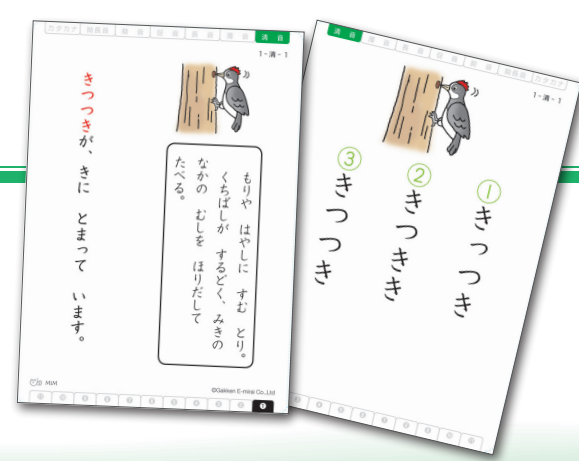 カタカナ 拗長音 清 音
1-清-1
もりや はやしに すむ とり。
くちばしが するどく、みきの
なかの むしを ほりだして
たべる。
きつつきが、きに とまって います。
MIM
©Gakken E-mirai Co.,Ltd
1
清 音 拗長音 カタカナ
1-清-1
① きっつき
② きつきき
③ きつつき